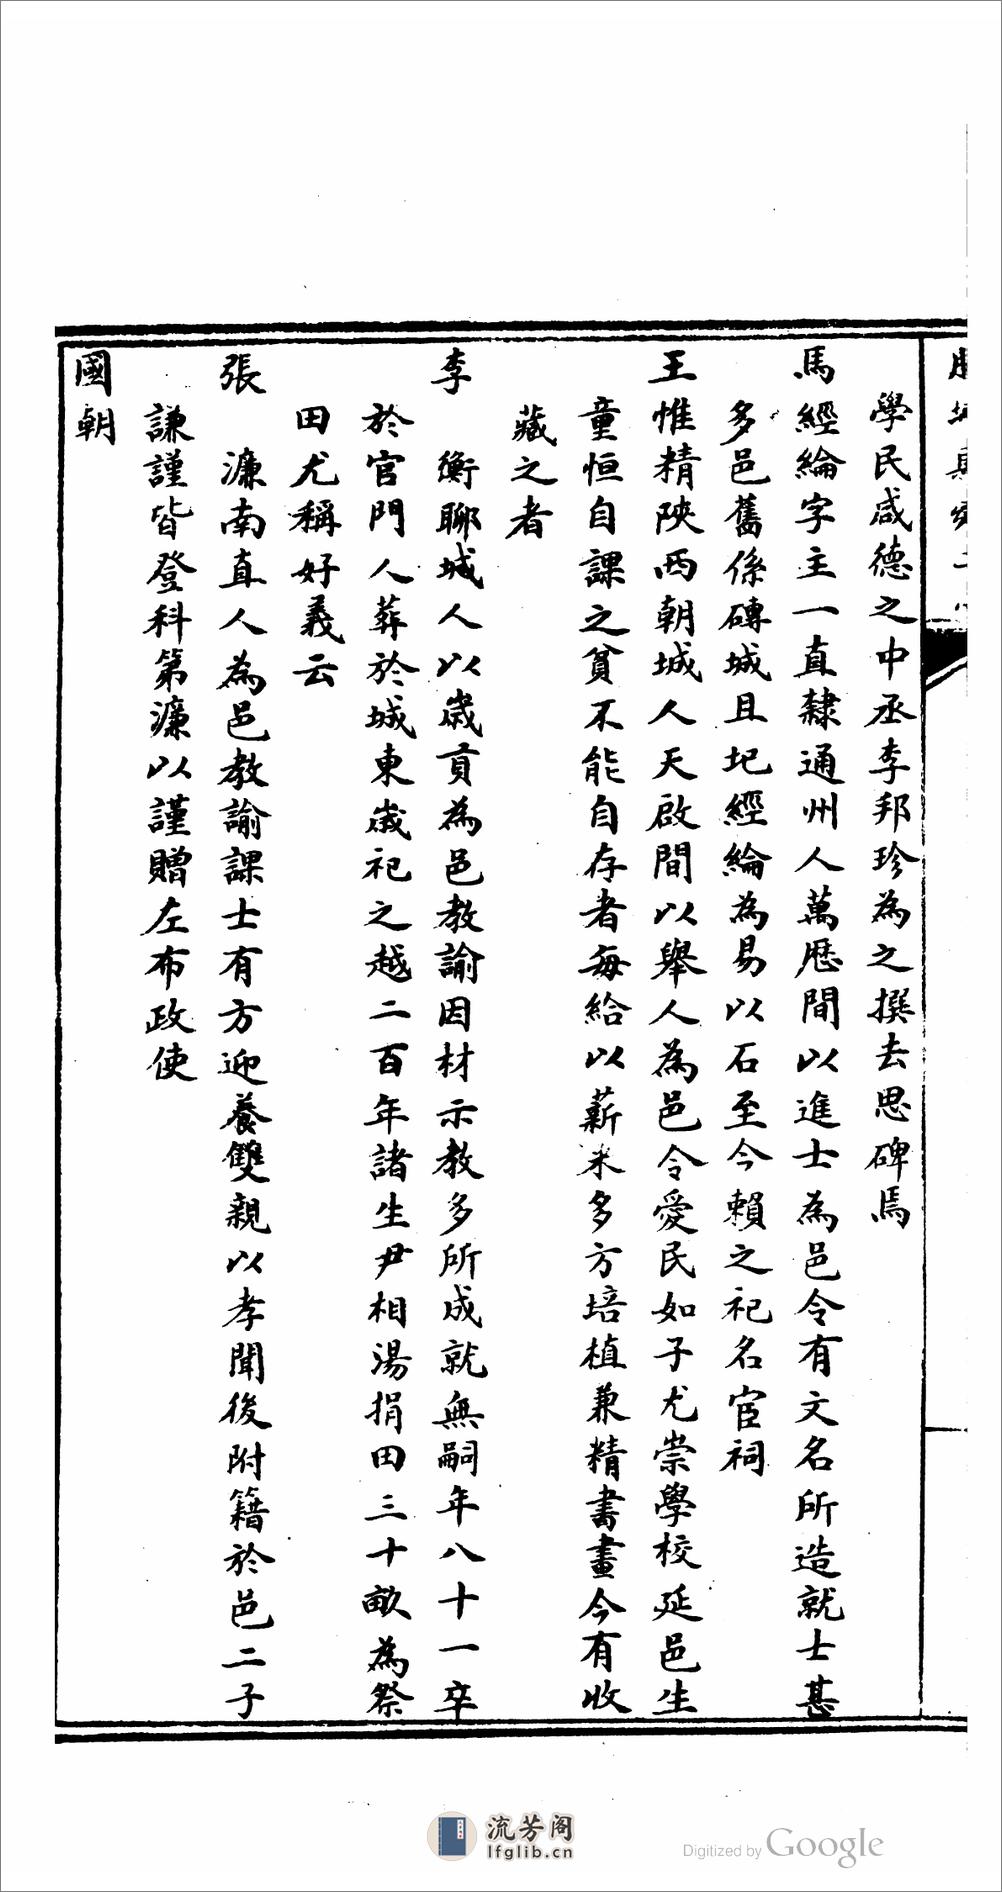 學民咸德之中丞李邦珍為之撰去思碑焉
馬經綸字主一直隸通州人萬歷間以進士為邑令有文名所造就士甚
多邑舊係磚城且圮經綸為易以石至今賴之祀名宦祠
王惟精陝西朝城人天啟間以舉人為邑令愛民如子尤崇學校延邑生
童恒自課之貧不能自存者每給以薪米多方培植兼精書畫今有收
藏之者
李 衡聊城人以歲貢為邑教諭因材示教多所成就無嗣年八十一卒
於官門人葬於城東歲祀之越二百年諸生尹相湯捐田三十畝為祭
田尤稱好義云
張 濂南直人為邑教諭課士有方迎養雙親以孝聞後附籍於邑二子
謙謹皆登科第濂以謹贈左布政使
國朝
流芳阁
lfglib.cn
Digitized by Google